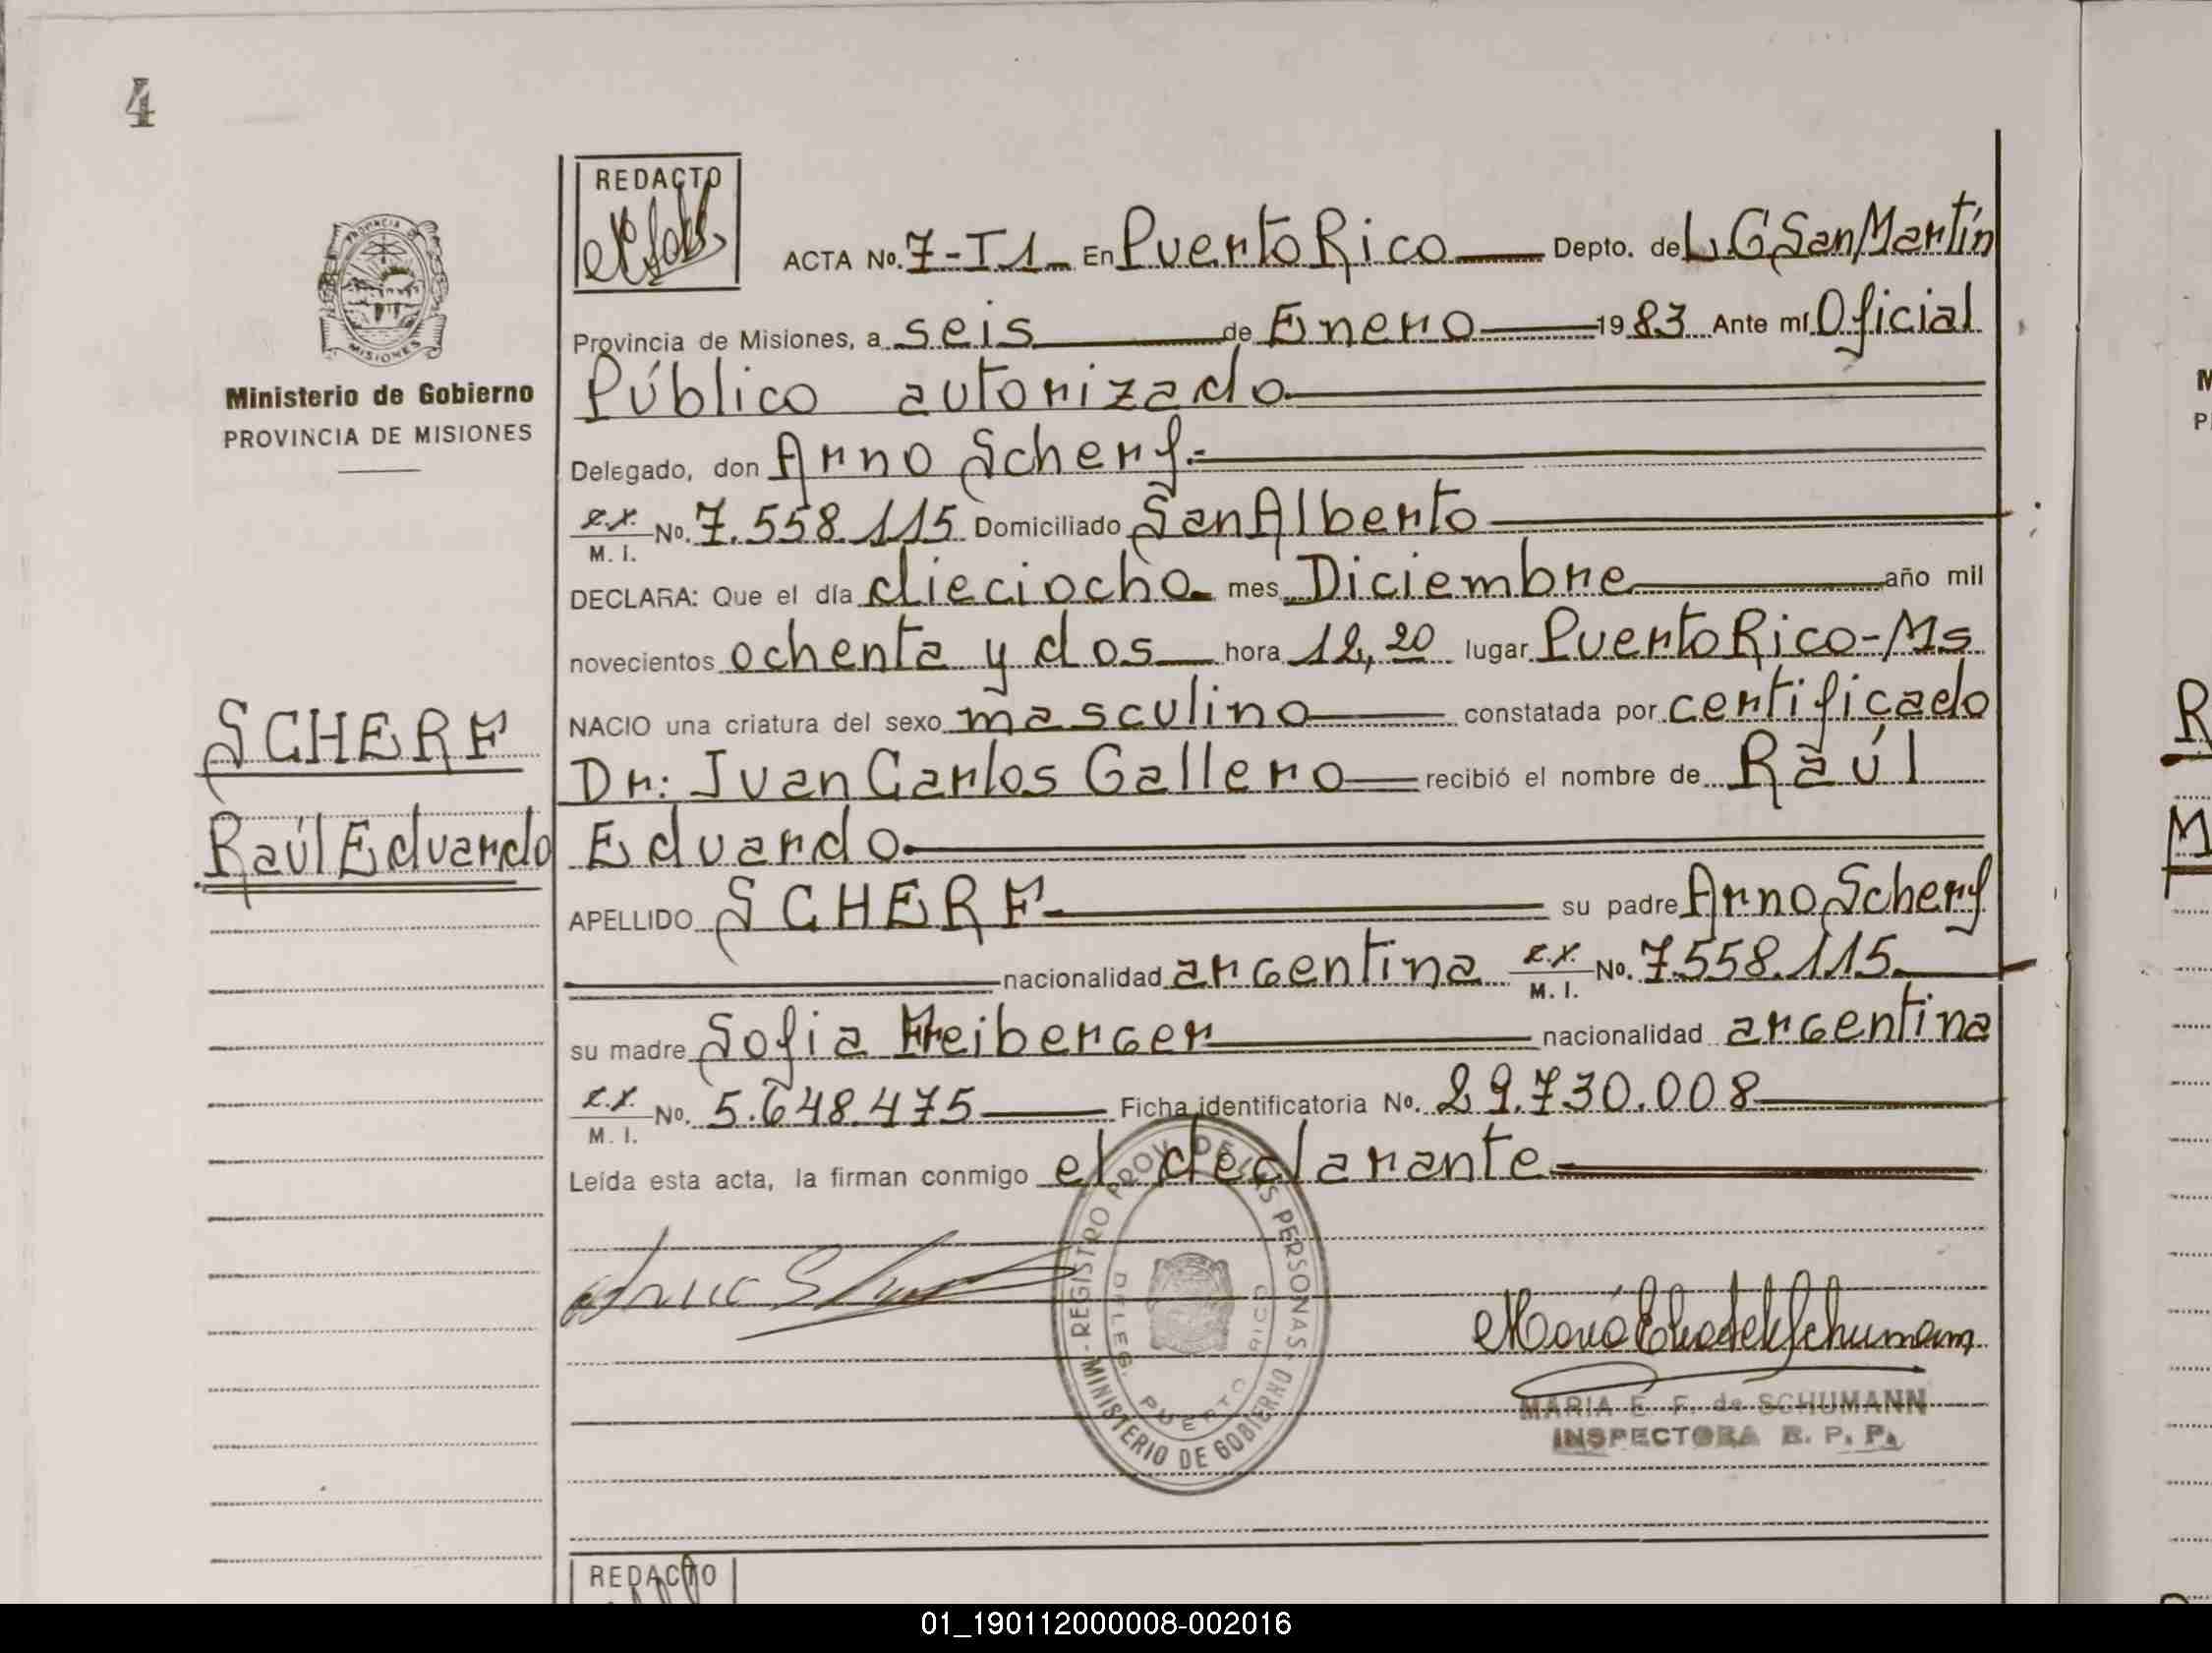 4
REDACTO
ACTA No. 7-T1 En Puerto Rico Depto. de L. G San Martín
Provincia de Misiones, a seis de Enero 1983 Ante mí Oficial
Público autorizado
Delegado, don Arno Scherf.-
M. I. No. 7.558.115 Domiciliado San Alberto
DECLARA: Que el día dieciocho mes Diciembre año mil
novecientos ochenta y dos hora 12,20 lugar Puerto Rico-Ms
NACIO una criatura del sexo masculino constatada por certificado
Dr: Juan Carlos Gallero recibió el nombre de Raúl
Eduardo
APELLIDO SCHERF su padre Arno Scherf
nacionalidad argentina M. I. No. 7.558.115
su madre Sofia Freiberger nacionalidad argentina
M. I. No. 5.648.475 Ficha identificatoria No. 29.730.008
Leída esta acta, la firman conmigo el declarante
PROVINCIA DE
MISIONES
Ministerio de Gobierno
PROVINCIA DE MISIONES
SCHERF
Raúl Eduardo
MINISTERIO DE GOBIERNO - REGISTRO PROV. DE LAS PERSONAS
DELEG. PUERTO RICO
MARIA E. F. de SCHUMANN
INSPECTORA R. P. P.
REDACTO
M
P
R
M
01_190112000008-002016